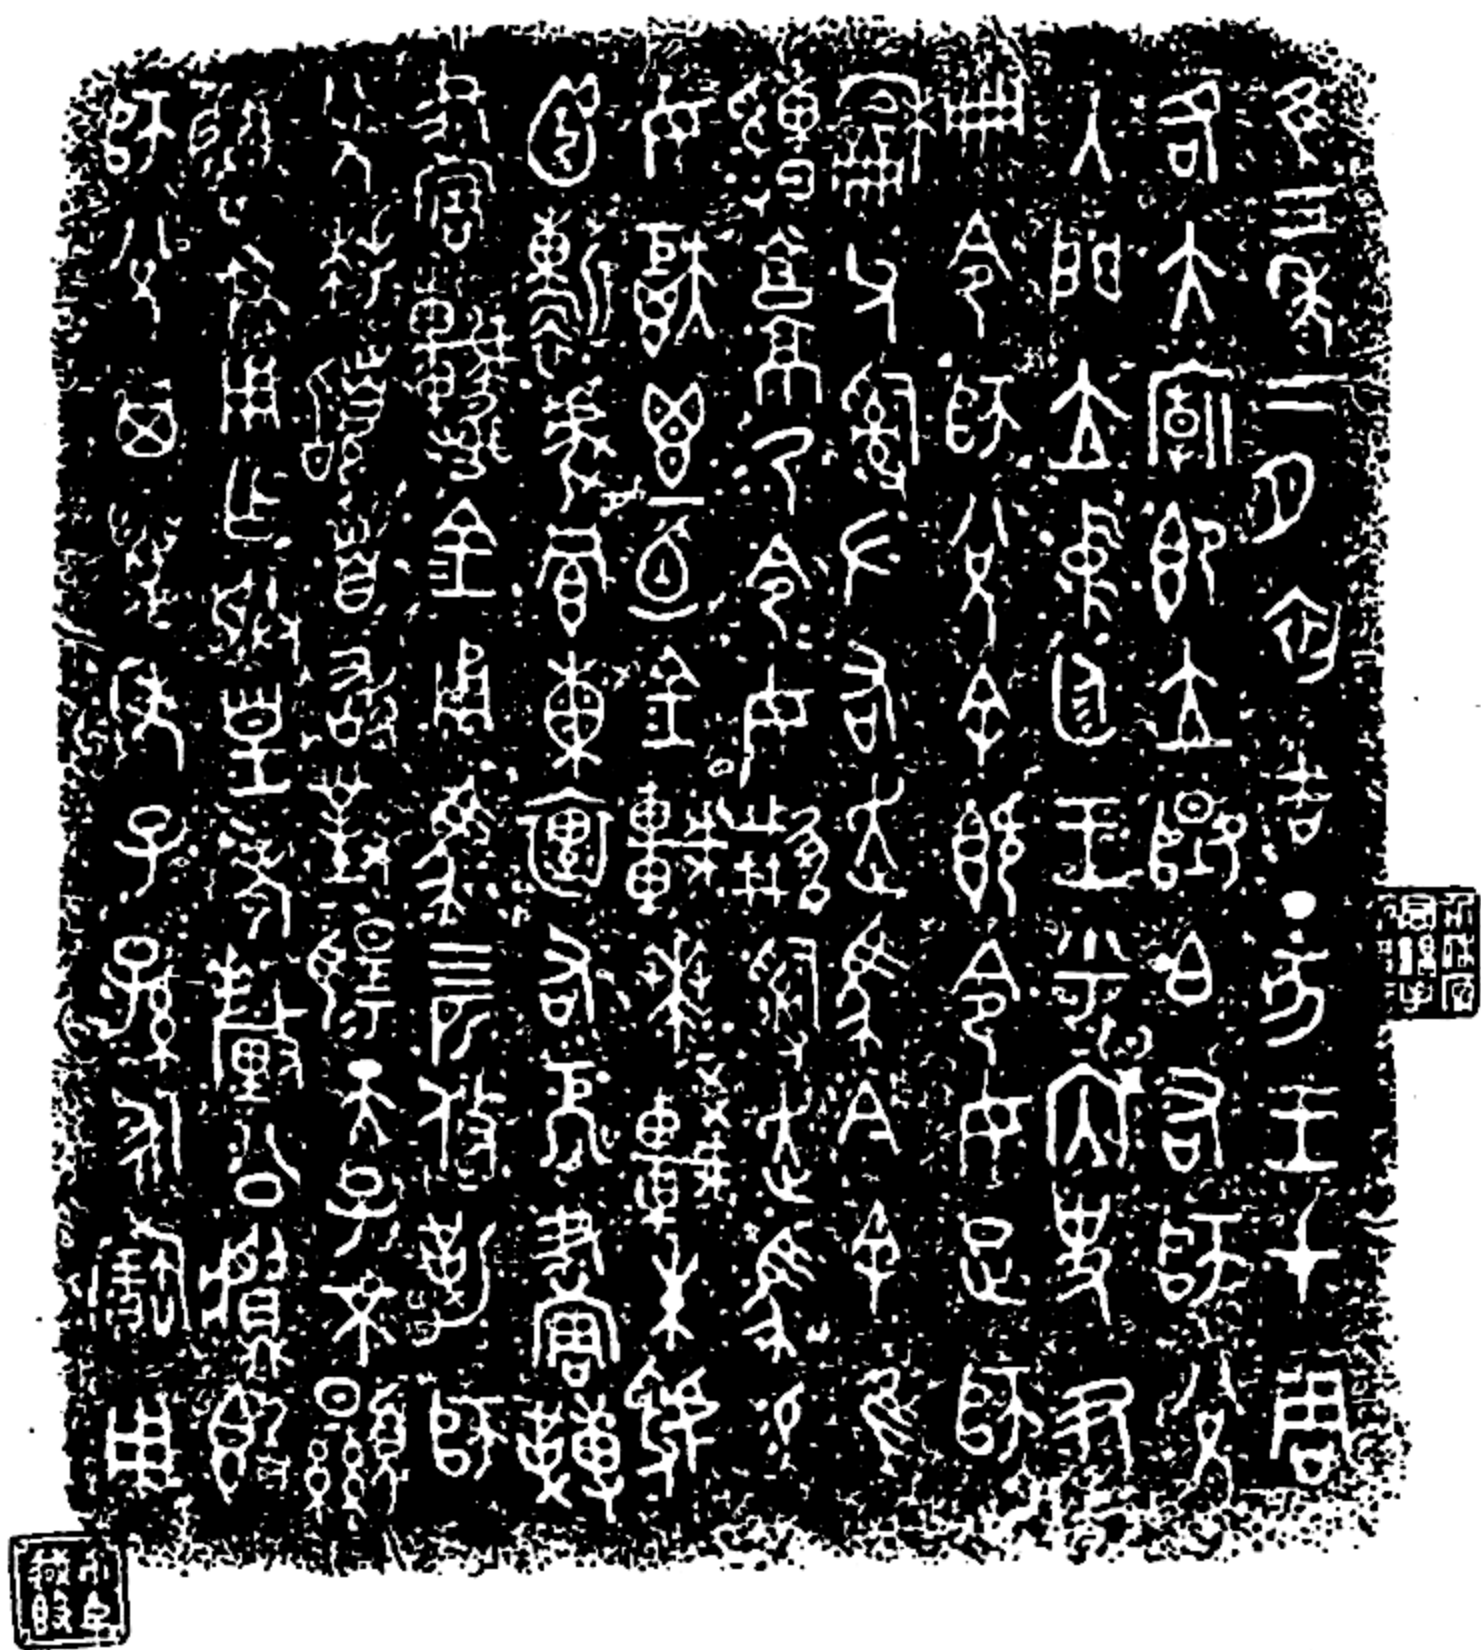 隹三年二月初吉丁亥王才周
各大廟即立𨽍白右師兌
入門立中廷王乎內史尹
冊令師兌余既令女疋師
龢父𤔲左右走馬今余隹
𤕌𩫖乃令女𩁹𤔲走馬易
女秬鬯一卣金車𠦪較朱虢
𢎘靳虎冟熏裏右厄畫轉
畫𨌲金甬馬四匹攸勒師
兌拜𩒨首敢對揚天子不顯
魯休用乍朕皇考釐公𪔉簋
師兌其萬年子孫永寶用